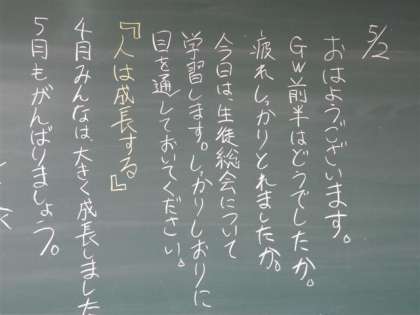 5/2
おはようございます。
GW前半はどうでしたか。
疲れしっかりとれましたか。
今日は、生徒総会について
学習します。しっかりしおりに
目を通しておいてください。
『人は成長する』
4月みんなは、大きく成長しました
5月もがんばりましょう。